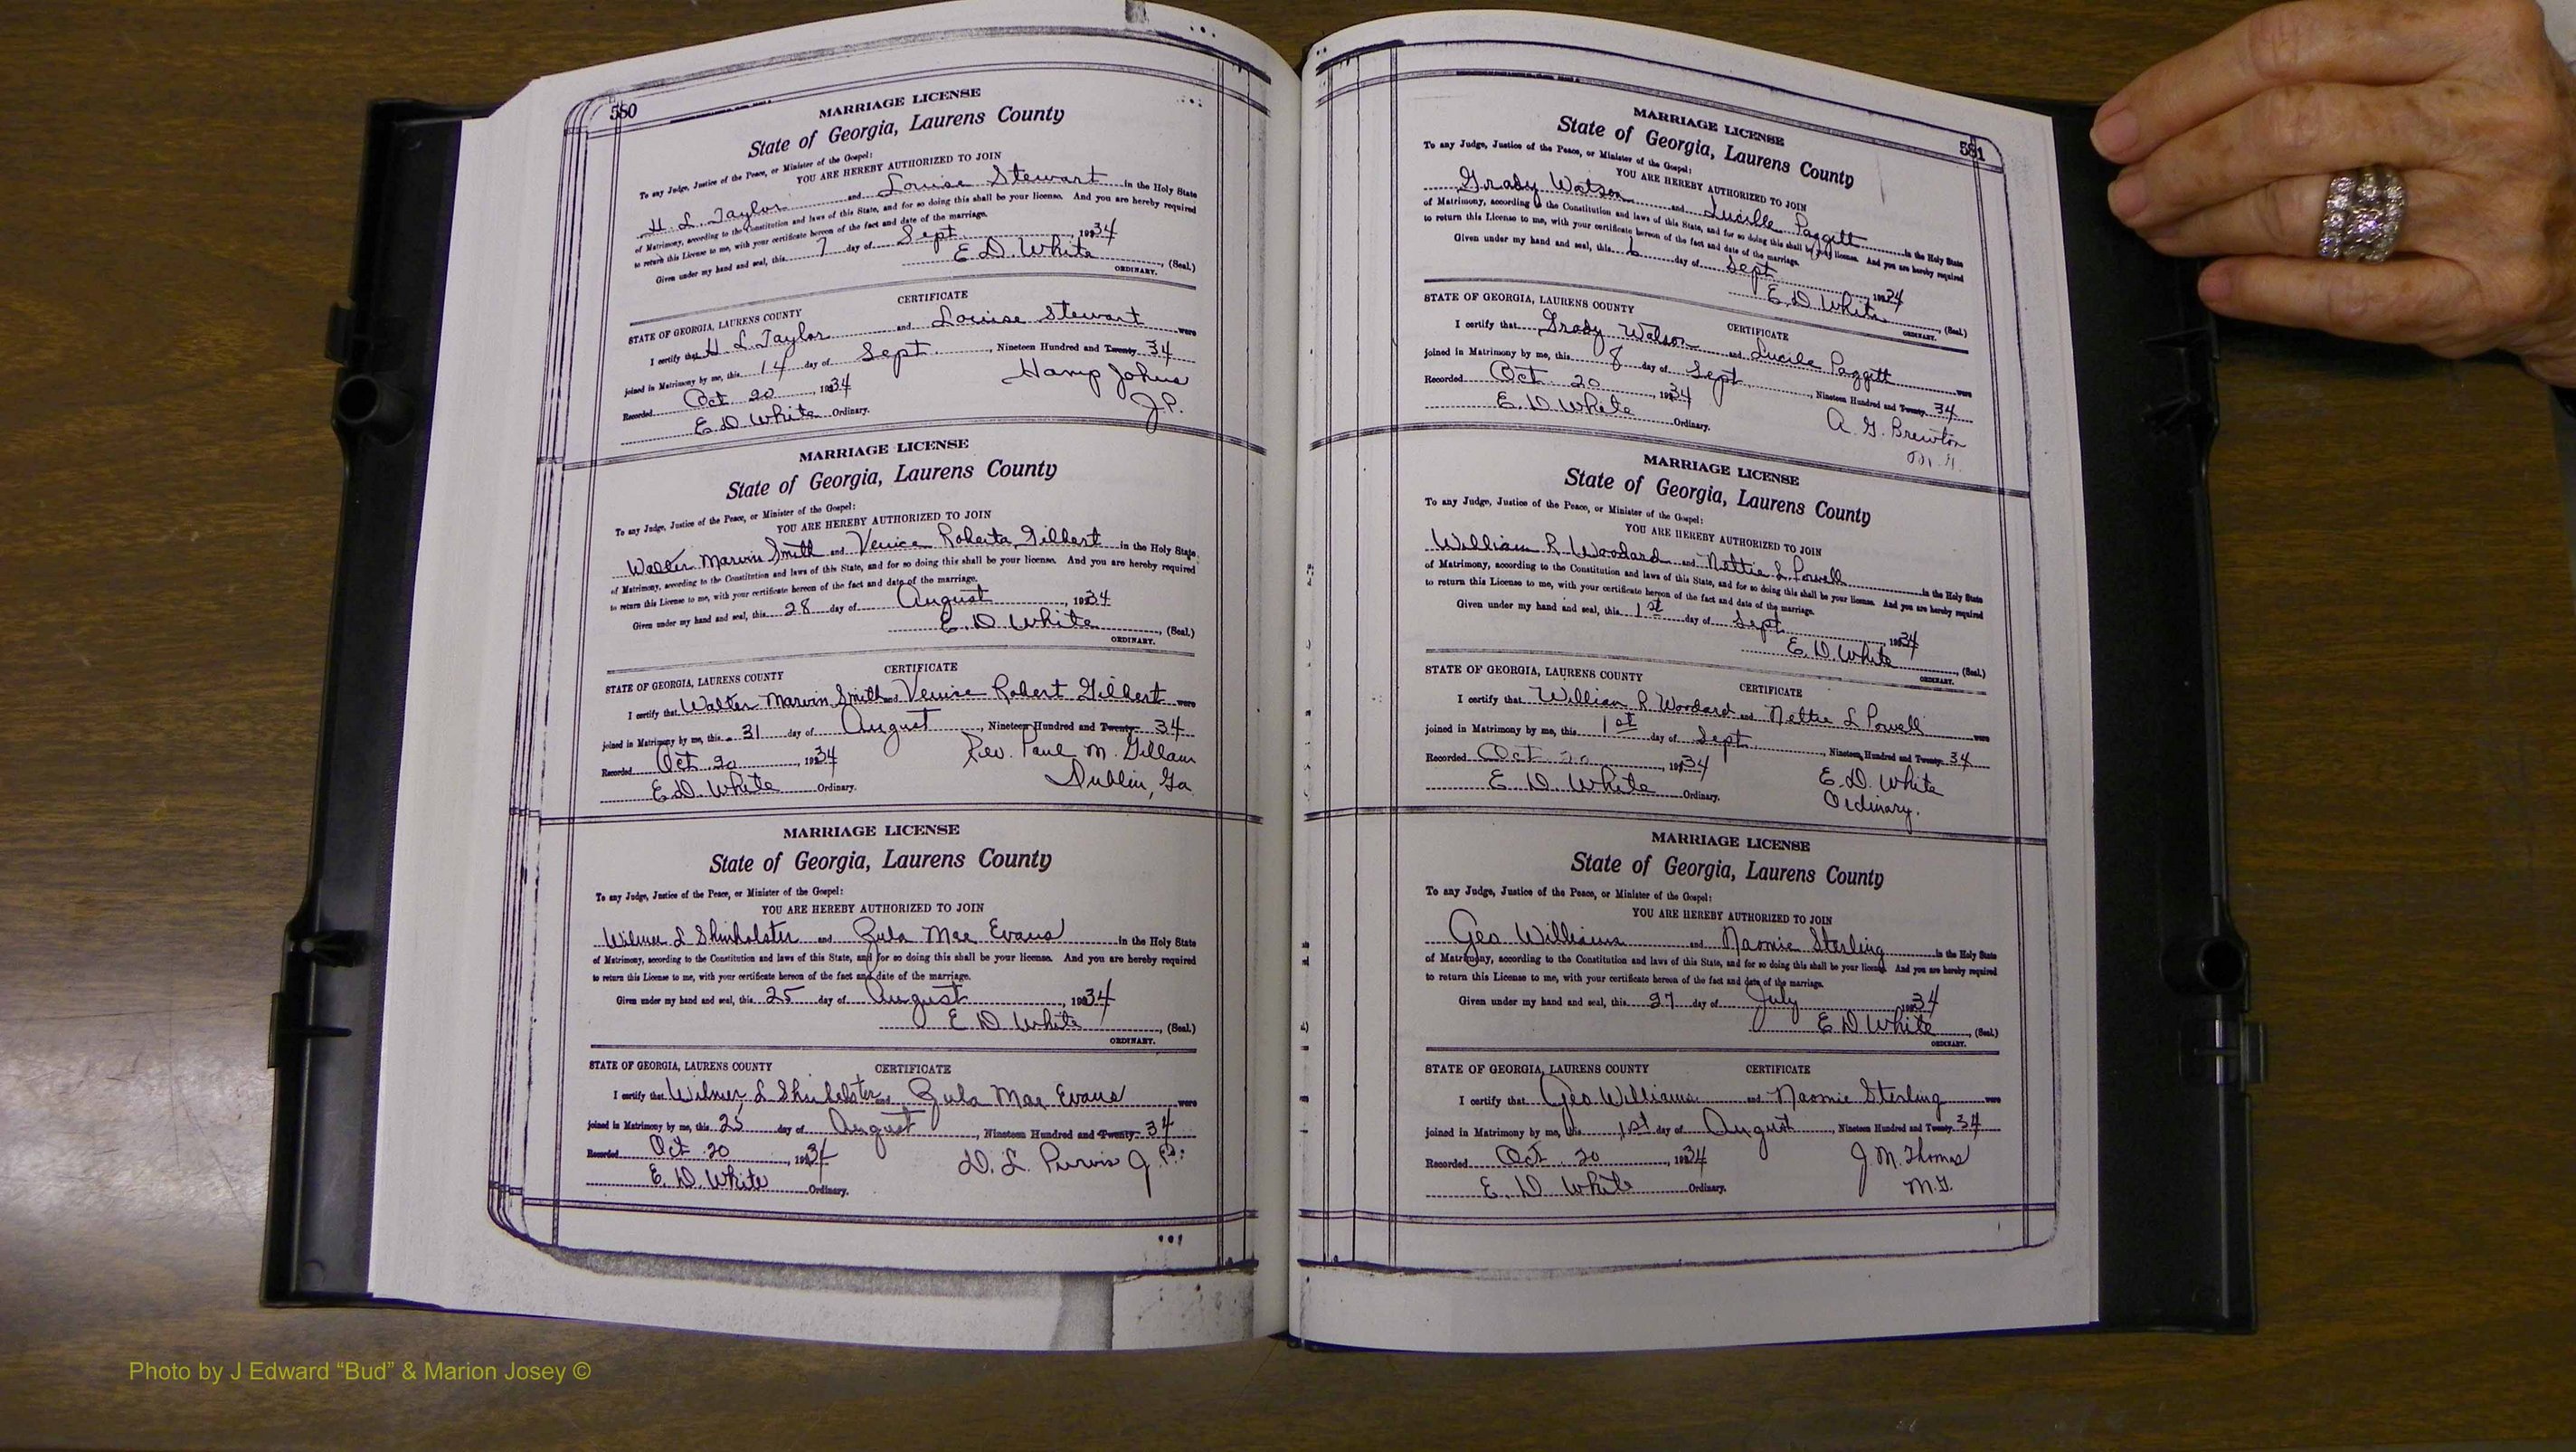 580
MARRIAGE LICENSE
State of Georgia, Laurens County
To any Judge, Justice of the Peace, or Minister of the Gospel:
YOU ARE HEREBY AUTHORIZED TO JOIN
H. L. Taylor and Louise Stewart in the Holy State
of Matrimony, according to the Constitution and laws of this State, and for so doing this shall be your license. And you are hereby required
to return this License to me, with your certificate hereon of the fact and date of the marriage.
Given under my hand and seal, this 7 day of Sept, 1934
E. D. White, (Seal.)
ORDINARY.
CERTIFICATE
STATE OF GEORGIA, LAURENS COUNTY
I certify that H L Taylor and Louise Stewart were
joined in Matrimony by me, this 14 day of Sept, Nineteen Hundred and Twenty 34
Recorded Oct 20, 1934 Hamp Johns
E. D. White Ordinary. J.P.
MARRIAGE LICENSE
State of Georgia, Laurens County
To any Judge, Justice of the Peace, or Minister of the Gospel:
YOU ARE HEREBY AUTHORIZED TO JOIN
Walter Marvin Smith and Venice Roberta Gilbert in the Holy State
of Matrimony, according to the Constitution and laws of this State, and for so doing this shall be your license. And you are hereby required
to return this License to me, with your certificate hereon of the fact and date of the marriage.
Given under my hand and seal, this 28 day of August, 1934
E. D. White, (Seal.)
ORDINARY.
CERTIFICATE
STATE OF GEORGIA, LAURENS COUNTY
I certify that Walter Marvin Smith and Venice Robert Gilbert were
joined in Matrimony by me, this 31 day of August, Nineteen Hundred and Twenty 34
Recorded Oct 20, 1934 Rev. Paul M. Gillam
E. D. White Ordinary. Dublin, Ga
MARRIAGE LICENSE
State of Georgia, Laurens County
To any Judge, Justice of the Peace, or Minister of the Gospel:
YOU ARE HEREBY AUTHORIZED TO JOIN
Wilmer L Shinholster and Zula Mae Evans in the Holy State
of Matrimony, according to the Constitution and laws of this State, and for so doing this shall be your license. And you are hereby required
to return this License to me, with your certificate hereon of the fact and date of the marriage.
Given under my hand and seal, this 25 day of August, 1934
E D White, (Seal.)
ORDINARY.
STATE OF GEORGIA, LAURENS COUNTY CERTIFICATE
I certify that Wilmer L Shinholster and Zula Mae Evans were
joined in Matrimony by me, this 25 day of August, Nineteen Hundred and Twenty 34
Recorded Oct 20, 1934 D. L. Purvis J.P.
E. D. White Ordinary.
581
MARRIAGE LICENSE
State of Georgia, Laurens County
To any Judge, Justice of the Peace, or Minister of the Gospel:
YOU ARE HEREBY AUTHORIZED TO JOIN
Grady Watson and Lucille Paggitt in the Holy State
of Matrimony, according to the Constitution and laws of this State, and for so doing this shall be your license. And you are hereby required
to return this License to me, with your certificate hereon of the fact and date of the marriage.
Given under my hand and seal, this 6 day of Sept, 1934
E. D. White, (Seal.)
ORDINARY.
STATE OF GEORGIA, LAURENS COUNTY CERTIFICATE
I certify that Grady Watson and Lucile Paggitt were
joined in Matrimony by me, this 8 day of Sept, Nineteen Hundred and Twenty 34
Recorded Oct 20, 1934 A. G. Brewton
E. D. White Ordinary. M.G.
MARRIAGE LICENSE
State of Georgia, Laurens County
To any Judge, Justice of the Peace, or Minister of the Gospel:
YOU ARE HEREBY AUTHORIZED TO JOIN
William R Woodard and Nettie L Powell in the Holy State
of Matrimony, according to the Constitution and laws of this State, and for so doing this shall be your license. And you are hereby required
to return this License to me, with your certificate hereon of the fact and date of the marriage.
Given under my hand and seal, this 1st day of Sept, 1934
E. D. White, (Seal.)
ORDINARY.
STATE OF GEORGIA, LAURENS COUNTY CERTIFICATE
I certify that William R Woodard and Nettie L Powell were
joined in Matrimony by me, this 1st day of Sept, Nineteen Hundred and Twenty 34
Recorded Oct 20, 1934 E. D. White
E. D. White Ordinary. Ordinary.
MARRIAGE LICENSE
State of Georgia, Laurens County
To any Judge, Justice of the Peace, or Minister of the Gospel:
YOU ARE HEREBY AUTHORIZED TO JOIN
Geo Williams and Naomie Sterling in the Holy State
of Matrimony, according to the Constitution and laws of this State, and for so doing this shall be your license. And you are hereby required
to return this License to me, with your certificate hereon of the fact and date of the marriage.
Given under my hand and seal, this 27 day of July, 1934
E D White, (Seal.)
ORDINARY.
STATE OF GEORGIA, LAURENS COUNTY CERTIFICATE
I certify that Geo Williams and Naomie Sterling were
joined in Matrimony by me, this 1st day of August, Nineteen Hundred and Twenty 34
Recorded Oct. 20, 1934 J. M. Thomas
E. D. White Ordinary. M.G.
Photo by J Edward “Bud” & Marion Josey ©